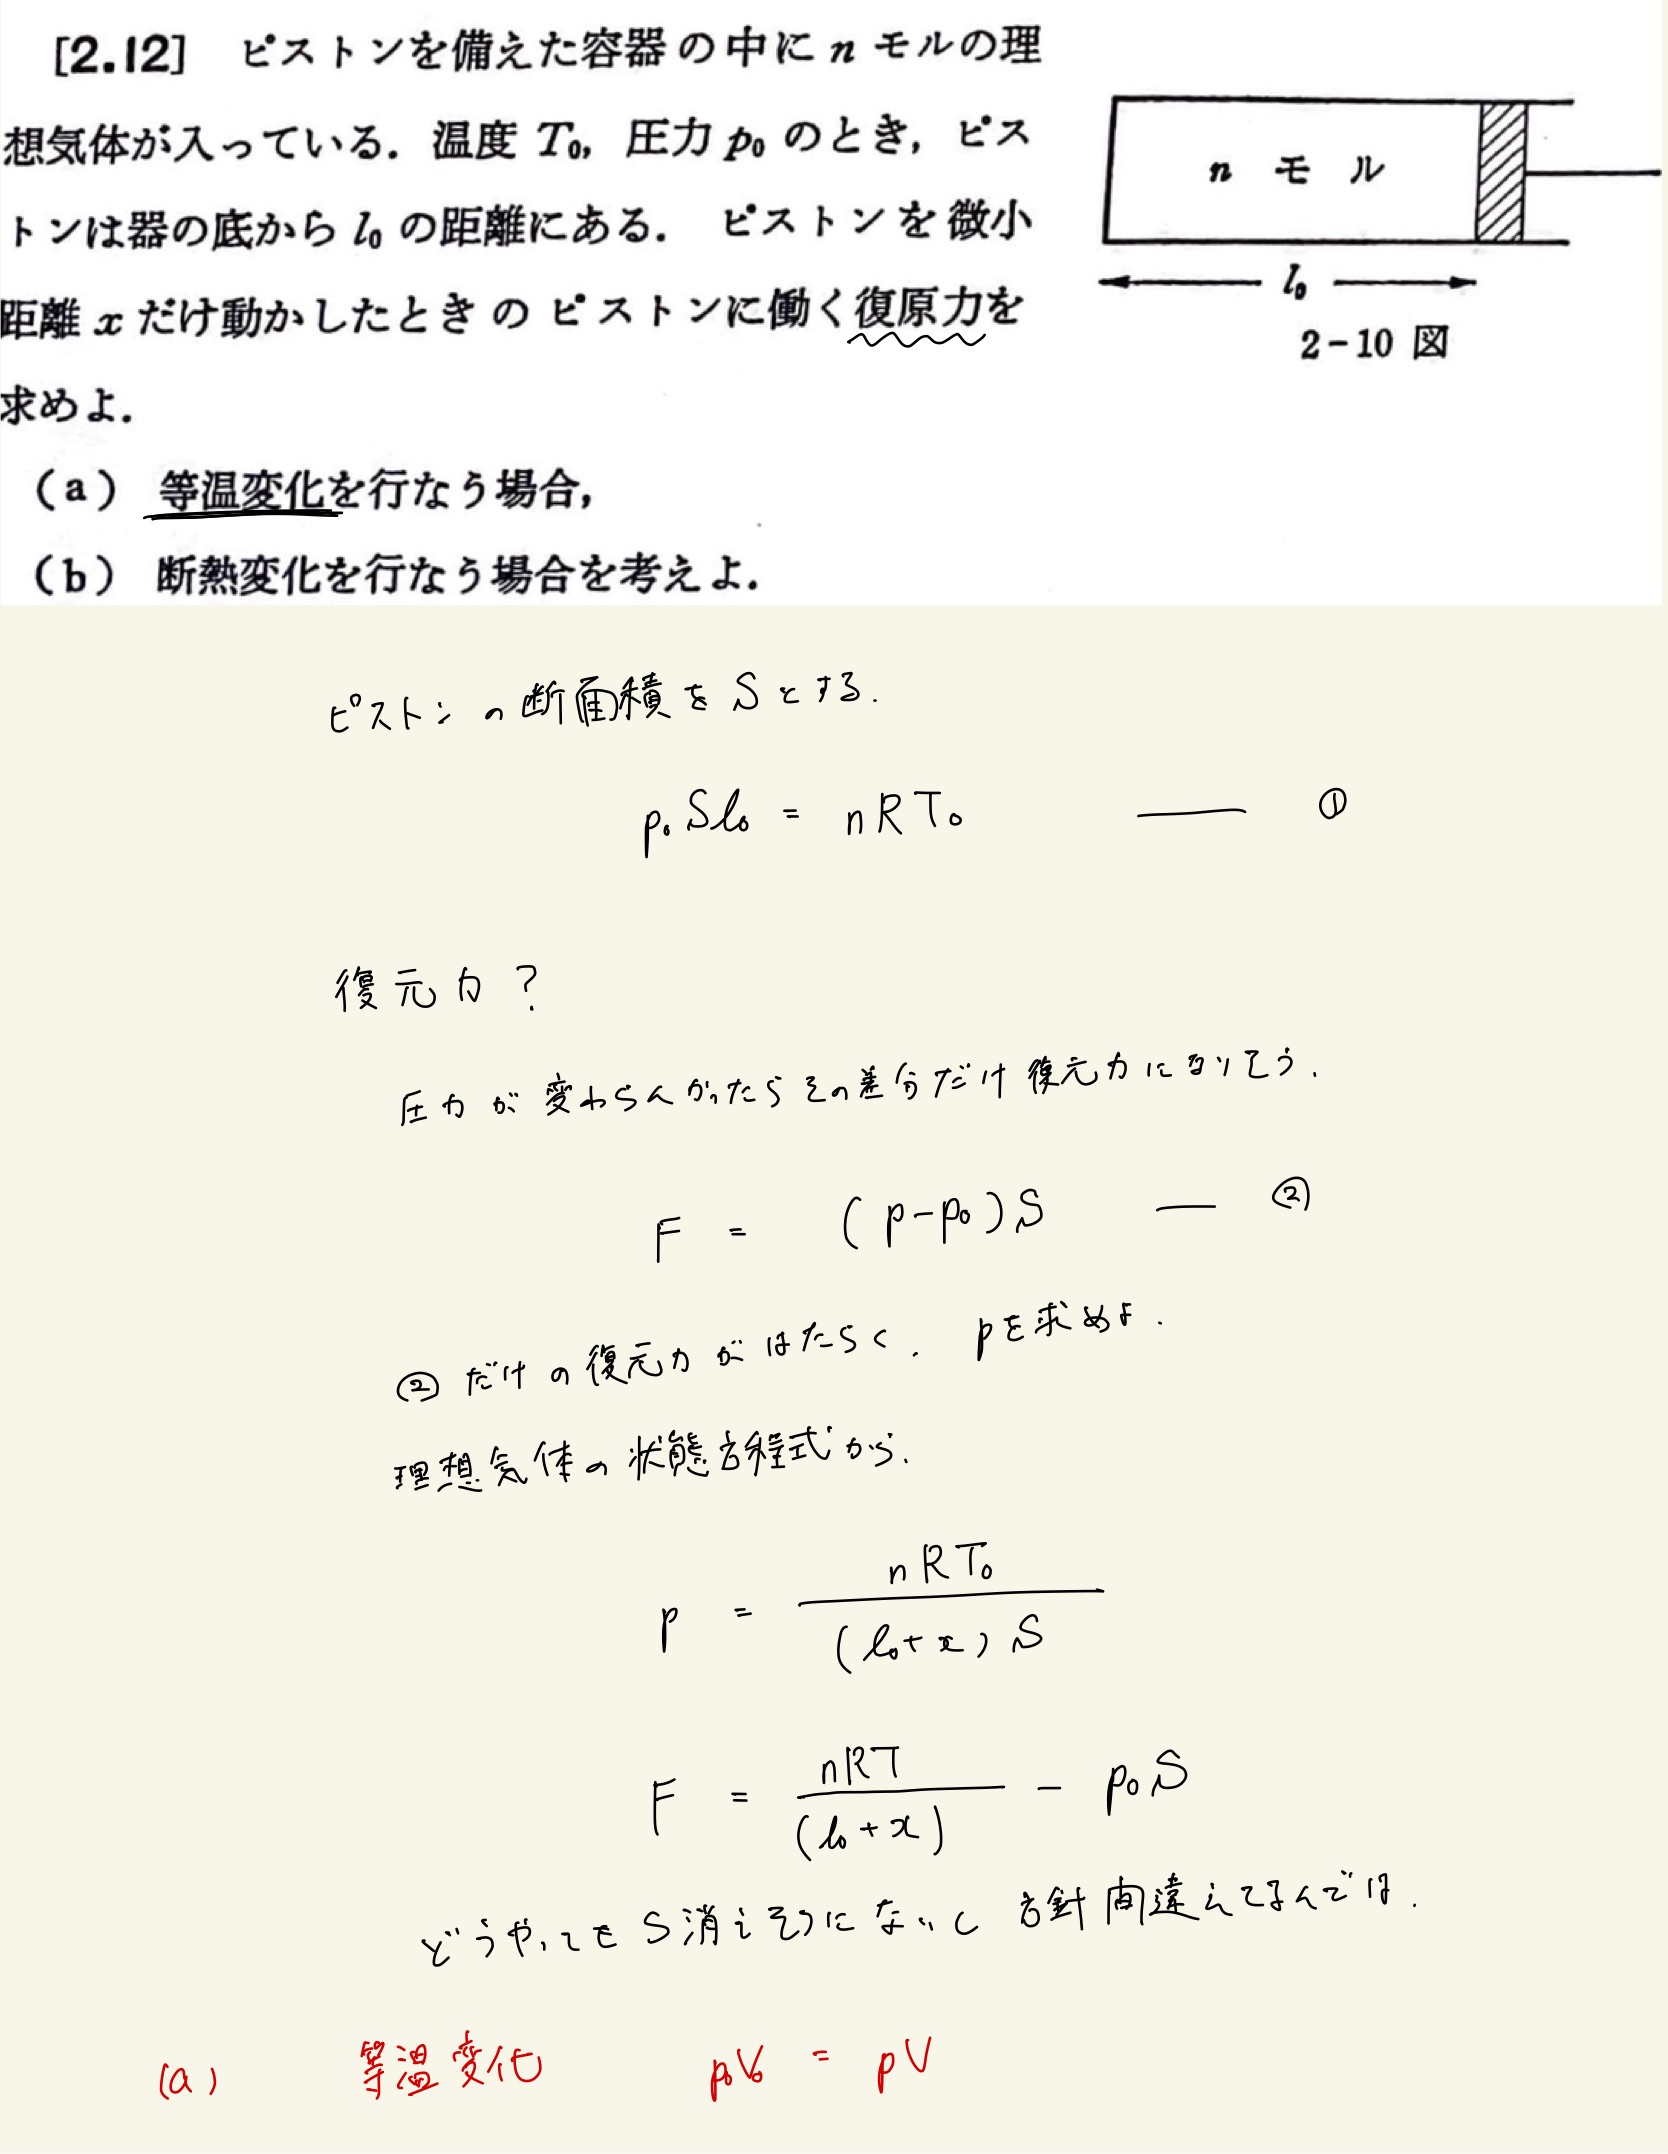 [2.12] ピストンを備えた容器の中に n モルの理
想気体が入っている．温度 T₀, 圧力 p₀ のとき，ピス
トンは器の底から l₀ の距離にある． ピストンを微小
距離 x だけ動かしたときのピストンに働く復原力を
求めよ．
(a) 等温変化を行なう場合，
(b) 断熱変化を行なう場合を考えよ．
n モル
l₀
2-10 図
ピストンの断面積をSとする．
p₀Sl₀ = nRT₀ ── ①
復元力？
圧力が変わらんかったらその差分だけ復元力になりそう．
F = (p-p₀)S ── ②
②だけの復元力がはたらく．pを求めよ．
理想気体の状態方程式から．
p = nRT₀ / (l₀+x)S
F = nRT / (l₀+x) - p₀S
どうやってもS消えそうにないし方針間違えてるんでは．
(a) 等温変化 p₀V₀ = pV